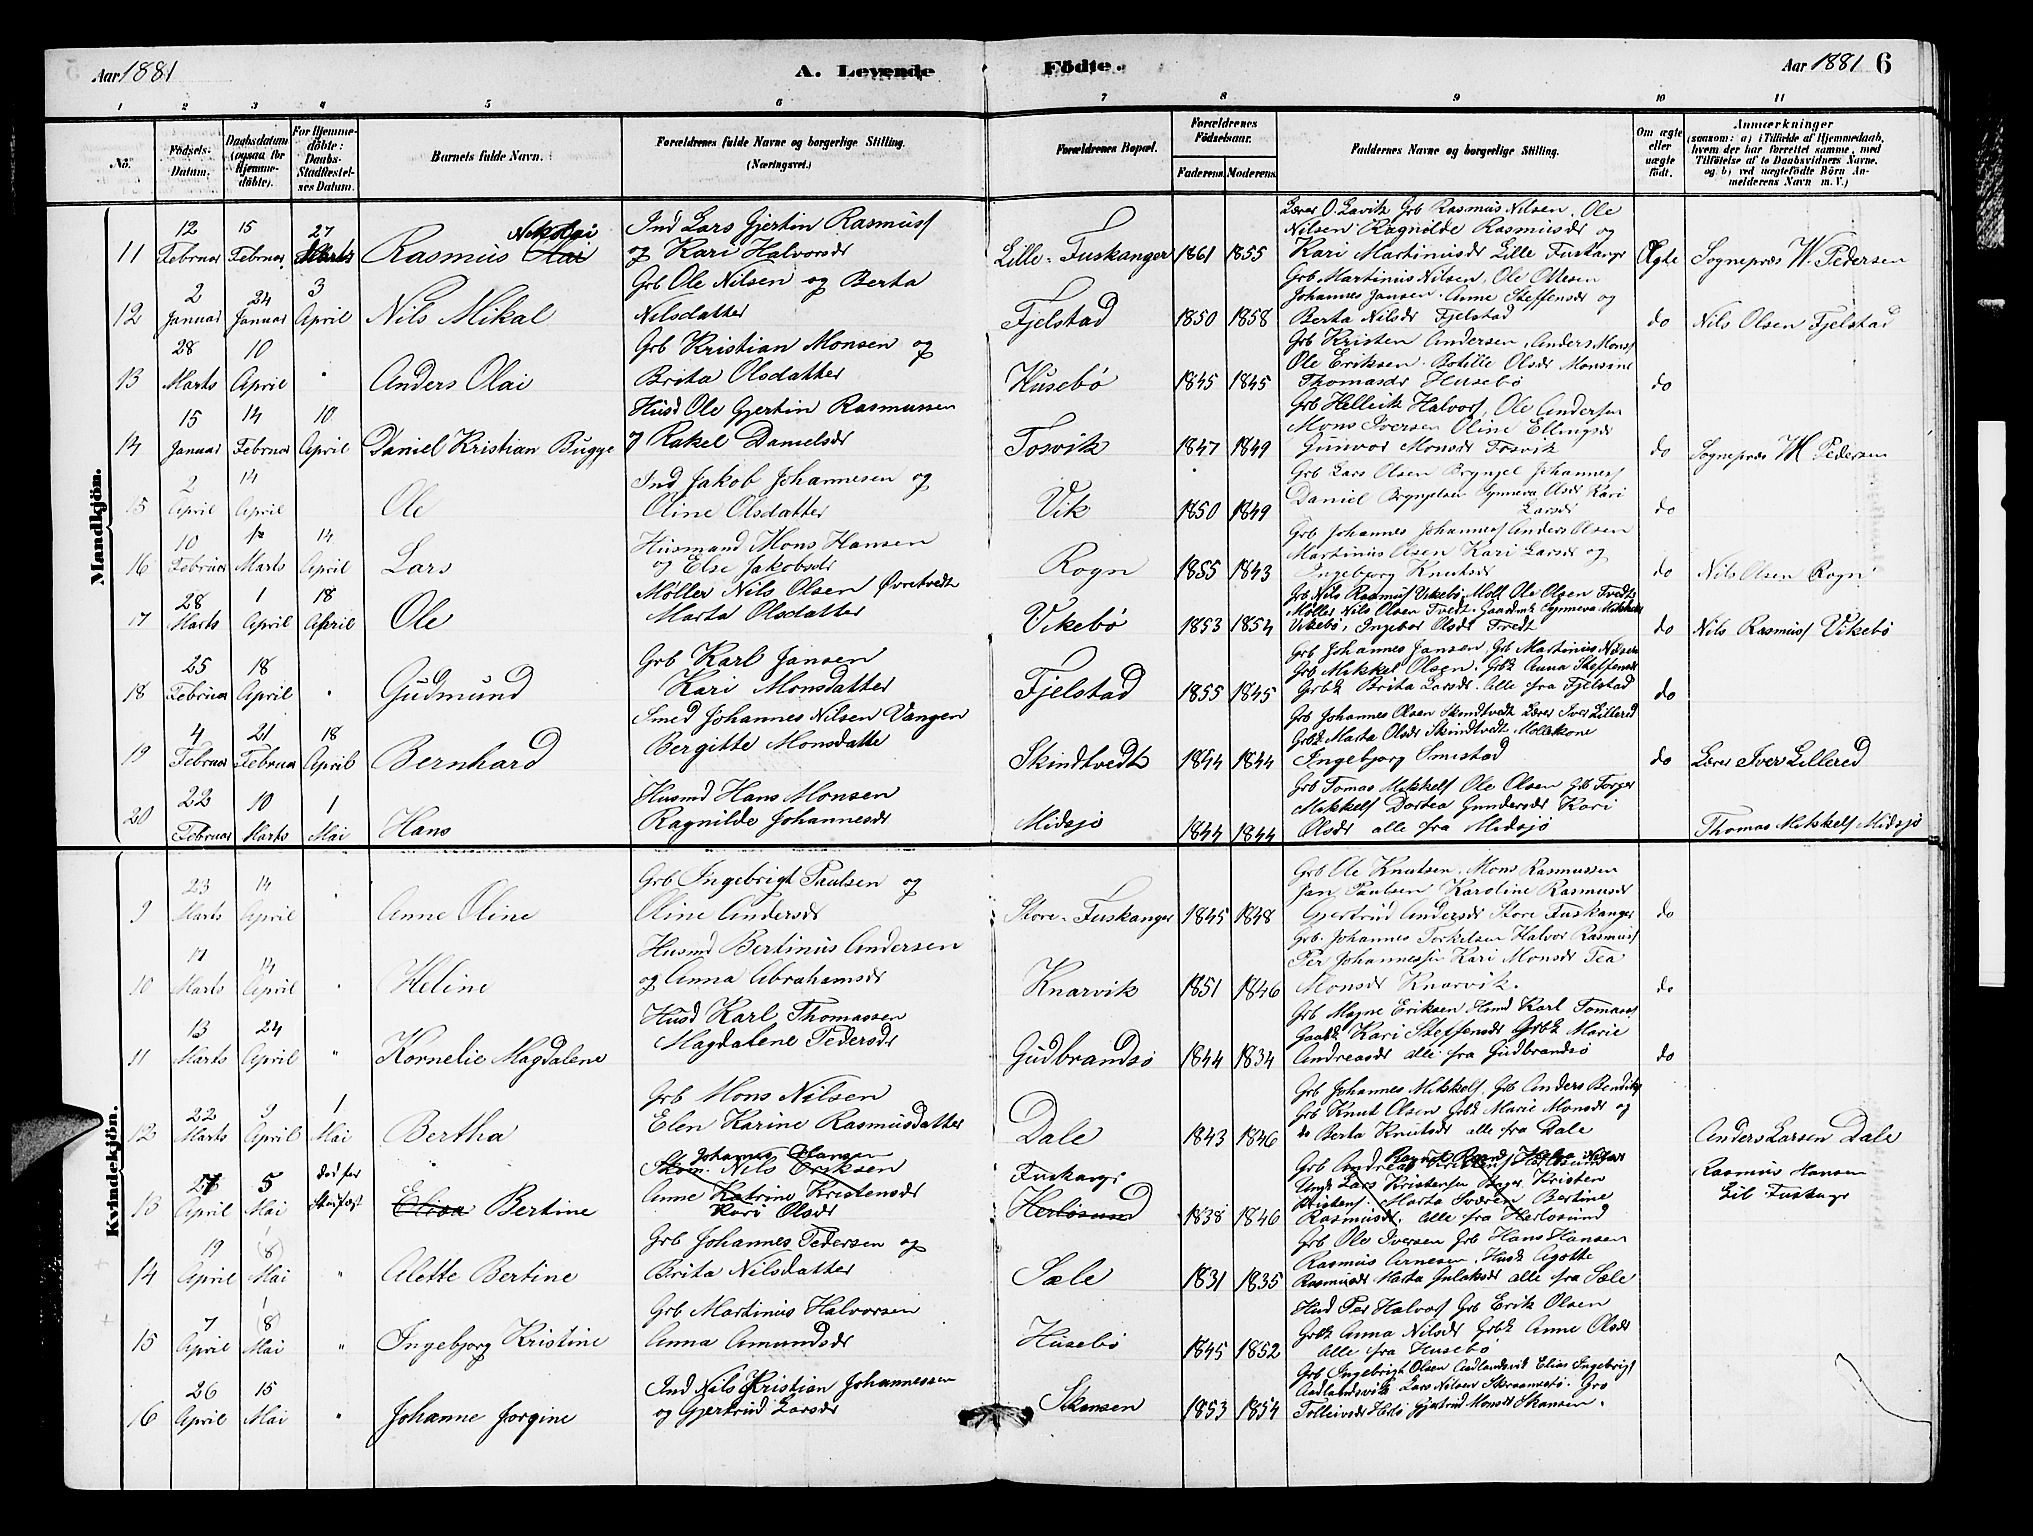 Aar 1881
A. Levende
Födte.
Aar 1881 6
1 2 3 4 5 6 7 8 9 10 11
No.
Födsels-Datum.
Daabsdatum (ogsaa for Hjemmedöbte).
For Hjemmedöbte: Daabs-Stadfæstelses Datum.
Barnets fulde Navn.
Forældrenes fulde Navne og borgerlige Stilling.
(Næringsvei.)
Forældrenes Bopæl.
Forældrenes Födselsaar.
Faderens. Moderens.
Faddernes Navne og borgerlige Stilling.
Om ægte eller uægte födt.
Anmærkninger
(saasom: a) i Tilfælde af Hjemmedaab, hvem der har forrettet samme, med Tilföielse af to Daabsvidners Navne, og b) ved uægtefödte Börn Anmelderens Navn m. V.)
Mandkjön.
11 12 Februar 15 Februar 27 Marts Rasmus Olai Nikolai
Ind Lars Gjertin Rasmuss
og Kari Halvorsdr
Lille-Fuskanger 1861 1855
Lærer O. Lavik Grb Rasmus Nilsen, Ole
Nilsen Ragnilde Rasmusdr og
Kari Martinusdr Lille Fuskangr
Ægte Sognepræs W. Pedersen
12 2 Januar 24 Januar 3 April Nils Mikal
Grb Ole Nilsen og Berta
Nilsdatter
Fjelstad 1850 1858
Grb Martinus Nilsen, Ole Olsen
Johannes Jansen Anne Steffensdr og
Berta Nilsdr Fjelstad
do Nils Olsen Fjelstad
13 28 Marts 10 April " Anders Olai
Grb Kristian Monsen og
Brita Olsdatter
Husebö 1845 1845
Grb Kristen Andersen, Anders Monss
Ole Eriksen Botille Olsdr Monsine
Thomasdr Husebö
do
14 15 Januar 14 Februar 10 April Daniel Kristian Bugge
Husd Ole Gjertin Rasmussen
og Rakel Danielsdr
Tosvik 1847 1849
Grb Helleik Halvors, Ole Andersen
Mons Iversen Oline Ellingsdr
Gunvor Monsdr Tosvik
do Sognepræs W Pedersen
15 2 April 14 April Ole
Ind Jakob Johannesen og
Oline Olsdatter
Vik 1850 1849
Grb Lars Olsen Brynjel Johanness
Daniel Brynjelsen Synneva Olsdr Kari
Larsdr
do
16 10 Februar Marts 14 April Lars
Husmand Mons Hansen
og Else Jakobsdr
Rogn 1855 1843
Grb Johannes Johanness Anders Olsen
Martinus Olsen Kari Larsdr og
Ingeborg Knutsdr
do Nils Olsen Rogn
17 28 Marts 1 April 18 April Ole
Möller Nils Olsen Övretvedt
Marta Olsdatter
Vikebö 1853 1854
Grb Nils Rasmuss Vikebö Möll Ole Olsen Tvedt
Möller Nils Olsen Tvedt. Synneva
Vikebö, Ingebor Olsdr Tvedt
do Nils Rasmuss Vikebö
18 25 Februar 18 April " Gudmund
Grb Karl Jansen
Kari Monsdatter
Fjelstad 1855 1845
Grb Johannes Jansen, Grb Martinus Nilsen
Grb Mikkel Olsen. Grbk Anna Steffensdr
Grbk Brita Larsdr. Alle fra Fjelstad
do
19 4 Februar 21 Februar 18 April Bernhard
Smed Johannes Nilsen Vangen
Bergitte Monsdatte
Skindtvedt 1844 1844
Grb Johannes Olsen Skindtvedt Lærer Iver Lillered
Grbk Marta Olsdr Skindtvedt
Ingebjorg Smestad
do Lærer Iver Lillered
20 22 Februar 10 Marts 1 Mai Hans
Husmd Hans Monsen
Ragnilde Johannesdr
Midsjö 1844 1844
Grb Tomas Mikkels Ole Olsen Grb Torger
Mikkels Dortea Gundersdr Kari
Olsdr alle fra Midsjö
Thomas Mikkels Midsjö
Kvindekjön.
9 23 Marts 14 April " Anne Oline
Grb Ingebrigt Paulsen og
Oline Andersdr
Store-Fuskanger 1845 1848
Grb Ole Knutsen, Mons Rasmussen
Jan Paulsen Karoline Rasmusdr
Gjertrud Andersdr Store Fuskanger
do
10 Marts 14 April " Heline
Husmd Bertinus Andersen
og Anna Abrahamsdr
Knarvik 1851 1846
Grb. Johannes Torkelsen Halvor Rasmuss
Per Johannessen Kari Monsdr Tea
Monsdr Knarvik.
do
11 13 Marts 24 April " Kornelie Magdalene
Husd Karl Thomassen
Magdalene Pedersdr
Gudbrandsö 1844 1834
Grb Magne Eriksen Hmd Karl Tomass
Kari Steffensdr Grbk Marie
Andreasdr alle fra Gudbrandsö
do
12 22 Marts 9 April 1 Mai Bertha
Grb Mons Nilsen
Elen Karine Rasmusdatter
Dale 1843 1846
Grb Johannes Mikkels, Grb Anders Bendiks
Grb Knut Olsen Grbk Marie Monsdr og
do Berta Knutsdr alle fra Dale
Anders Larsen Dale
13 April 5 Mai död för Elisa Bertine
Johannes Hansen
Nils Eriksen
Anne Katrine Kristensdr
Kari Olsdr
Fuskangr
Herlösund 1838 1846
Grb Andreas
Ungk Lars Kristensen Kristen
Marta Bertine
Rasmusdr. Alle fra Herlosund
Rasmus Hansen
Lil Fuskagr
14 19 April 8 Mai " Alette Bertine
Grb Johannes Pedersen og
Brita Nilsdatter
Sæle 1831 1835
Grb Ole Iversen Grb Hans Hansen
Rasmus Arnesen, Husk Agotte
Rasmusdr Marta alle fra Sæle
15 7 April 8 Mai " Ingebjorg Kristine
Grb Martinus Halvorsen
Anna Amundsdr
Husebö 1845 1852
Husd Per Halvors Grb Erik Olsen
Grbk Anna Nilsdr Grbk Anne Olsdr
Alle fra Husebö
16 26 April 15 Mai " Johanne Jorgine
Ind Nils Kristian Johannessen
og Gjertrud Larsdr
Skansen 1853 1854
Grb Ingebrigt Olsen Aadlandsvik Elias Ingebrigt
Aadlandsvik Lars Nilsen Gro
Gjertrud Monsdr Skansen.